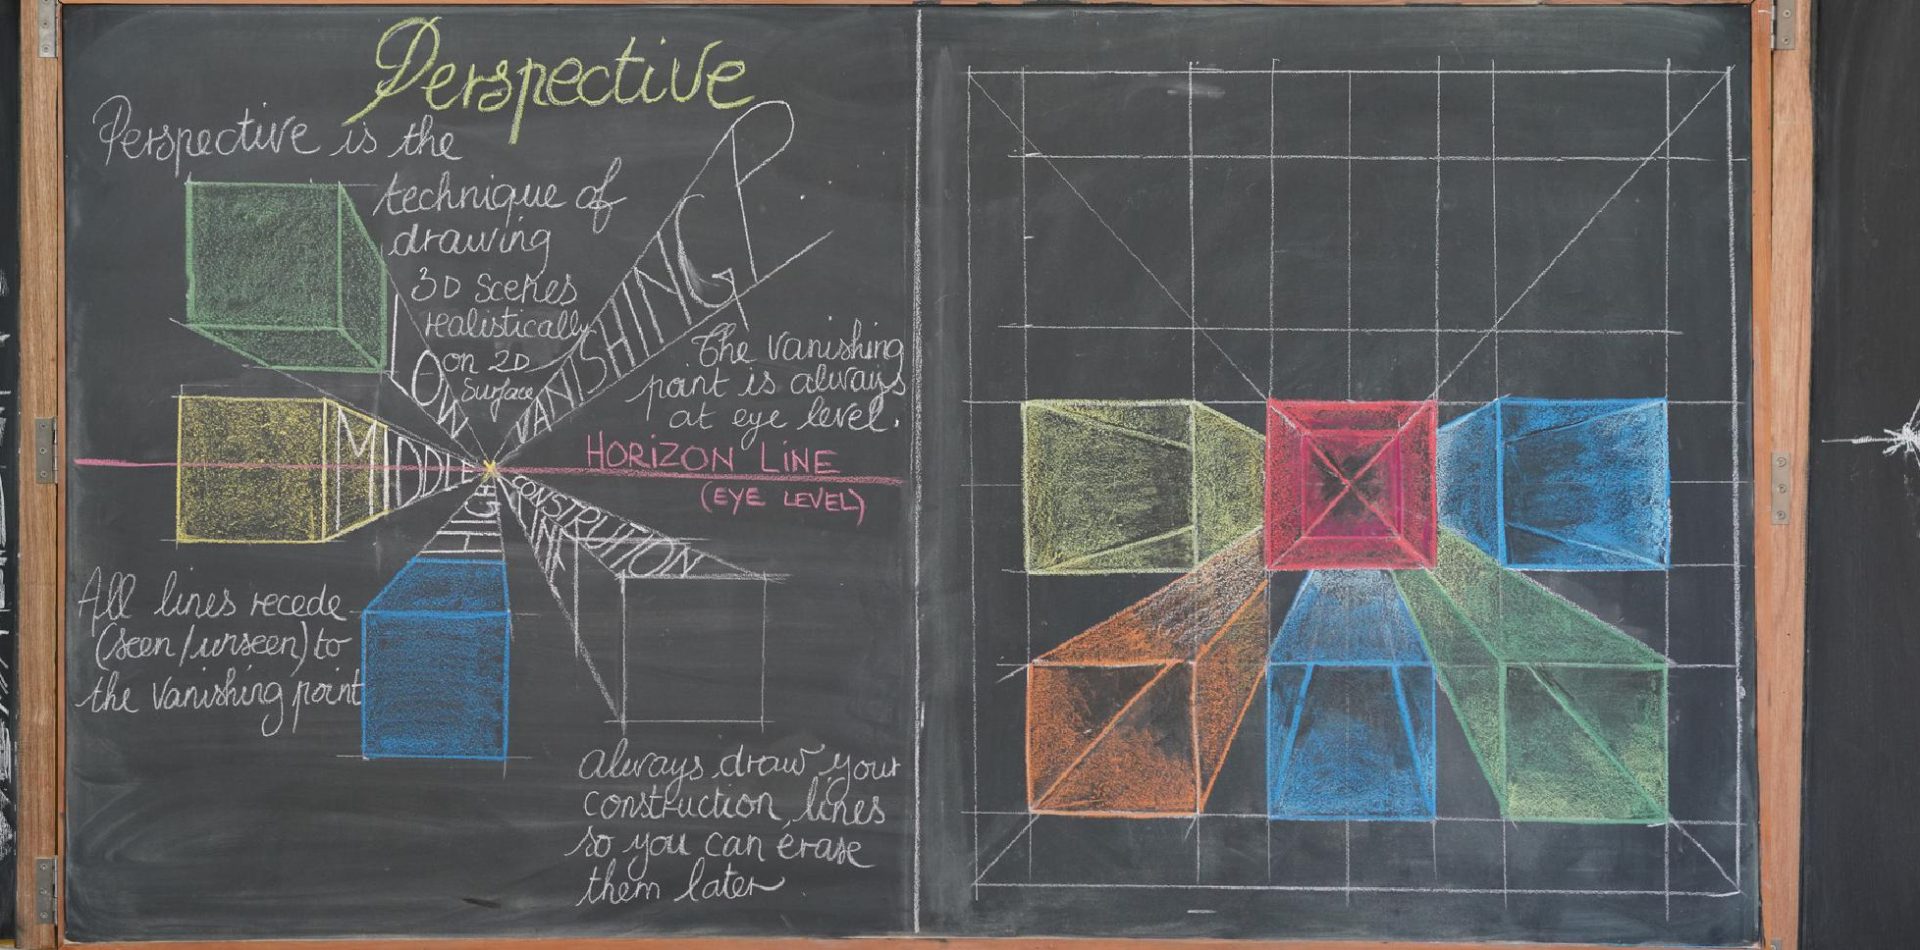 Perspective
Perspective is the
technique of
drawing
3D Scenes
realistically
on 2D
Surface
VANISHING P
LOW
The vanishing
point is always
at eye level.
MIDDLE
HORIZON LINE
(EYE LEVEL)
HIGH
CONSTRUTION
LINK
All lines recede
(seen/unseen) to
the vanishing point
always draw your
construction lines
so you can erase
them later